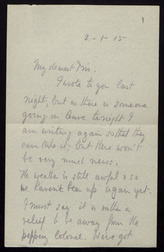 1
2-1-15
My dearest
I wrote to you last
night, but as there is someone
going on leave tonight I
am writing again so that they
can take it, but there won't
be very much news.
The weather is still awful & so
we haven't been up again yet.
I must say it is rather a
relief to be away from the
peppery Colonel. We've got